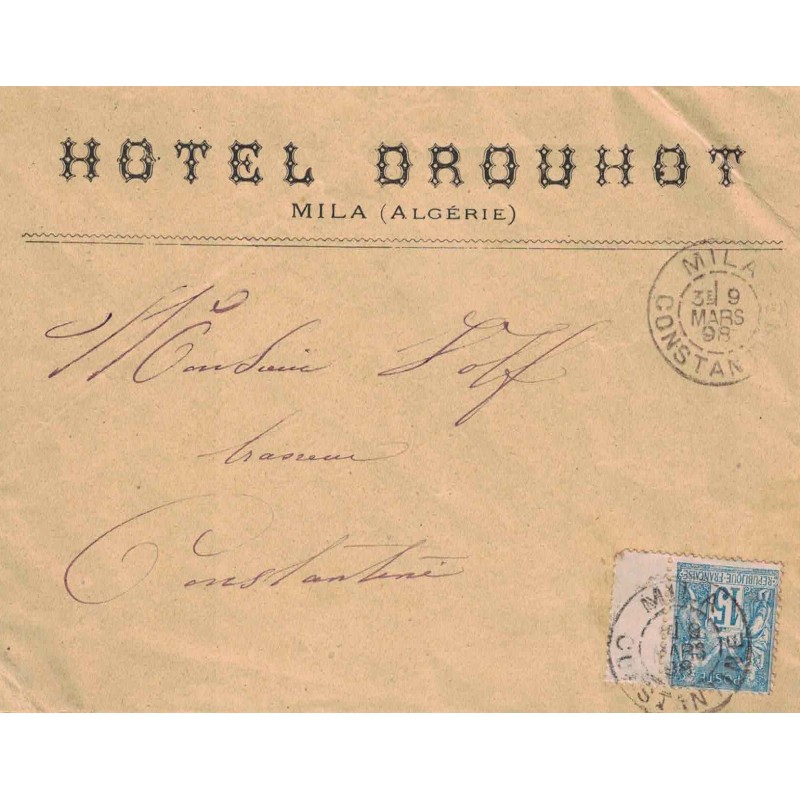 HOTEL DROUHOT
MILA (ALGÉRIE)
MILA
3E 9
MARS
98
CONSTAN
Monsieur Wolf
brasseur
Constantine
REPUBLIQUE FRANÇAISE
15
POSTE
MILA
MARS
98
CONSTANTINE